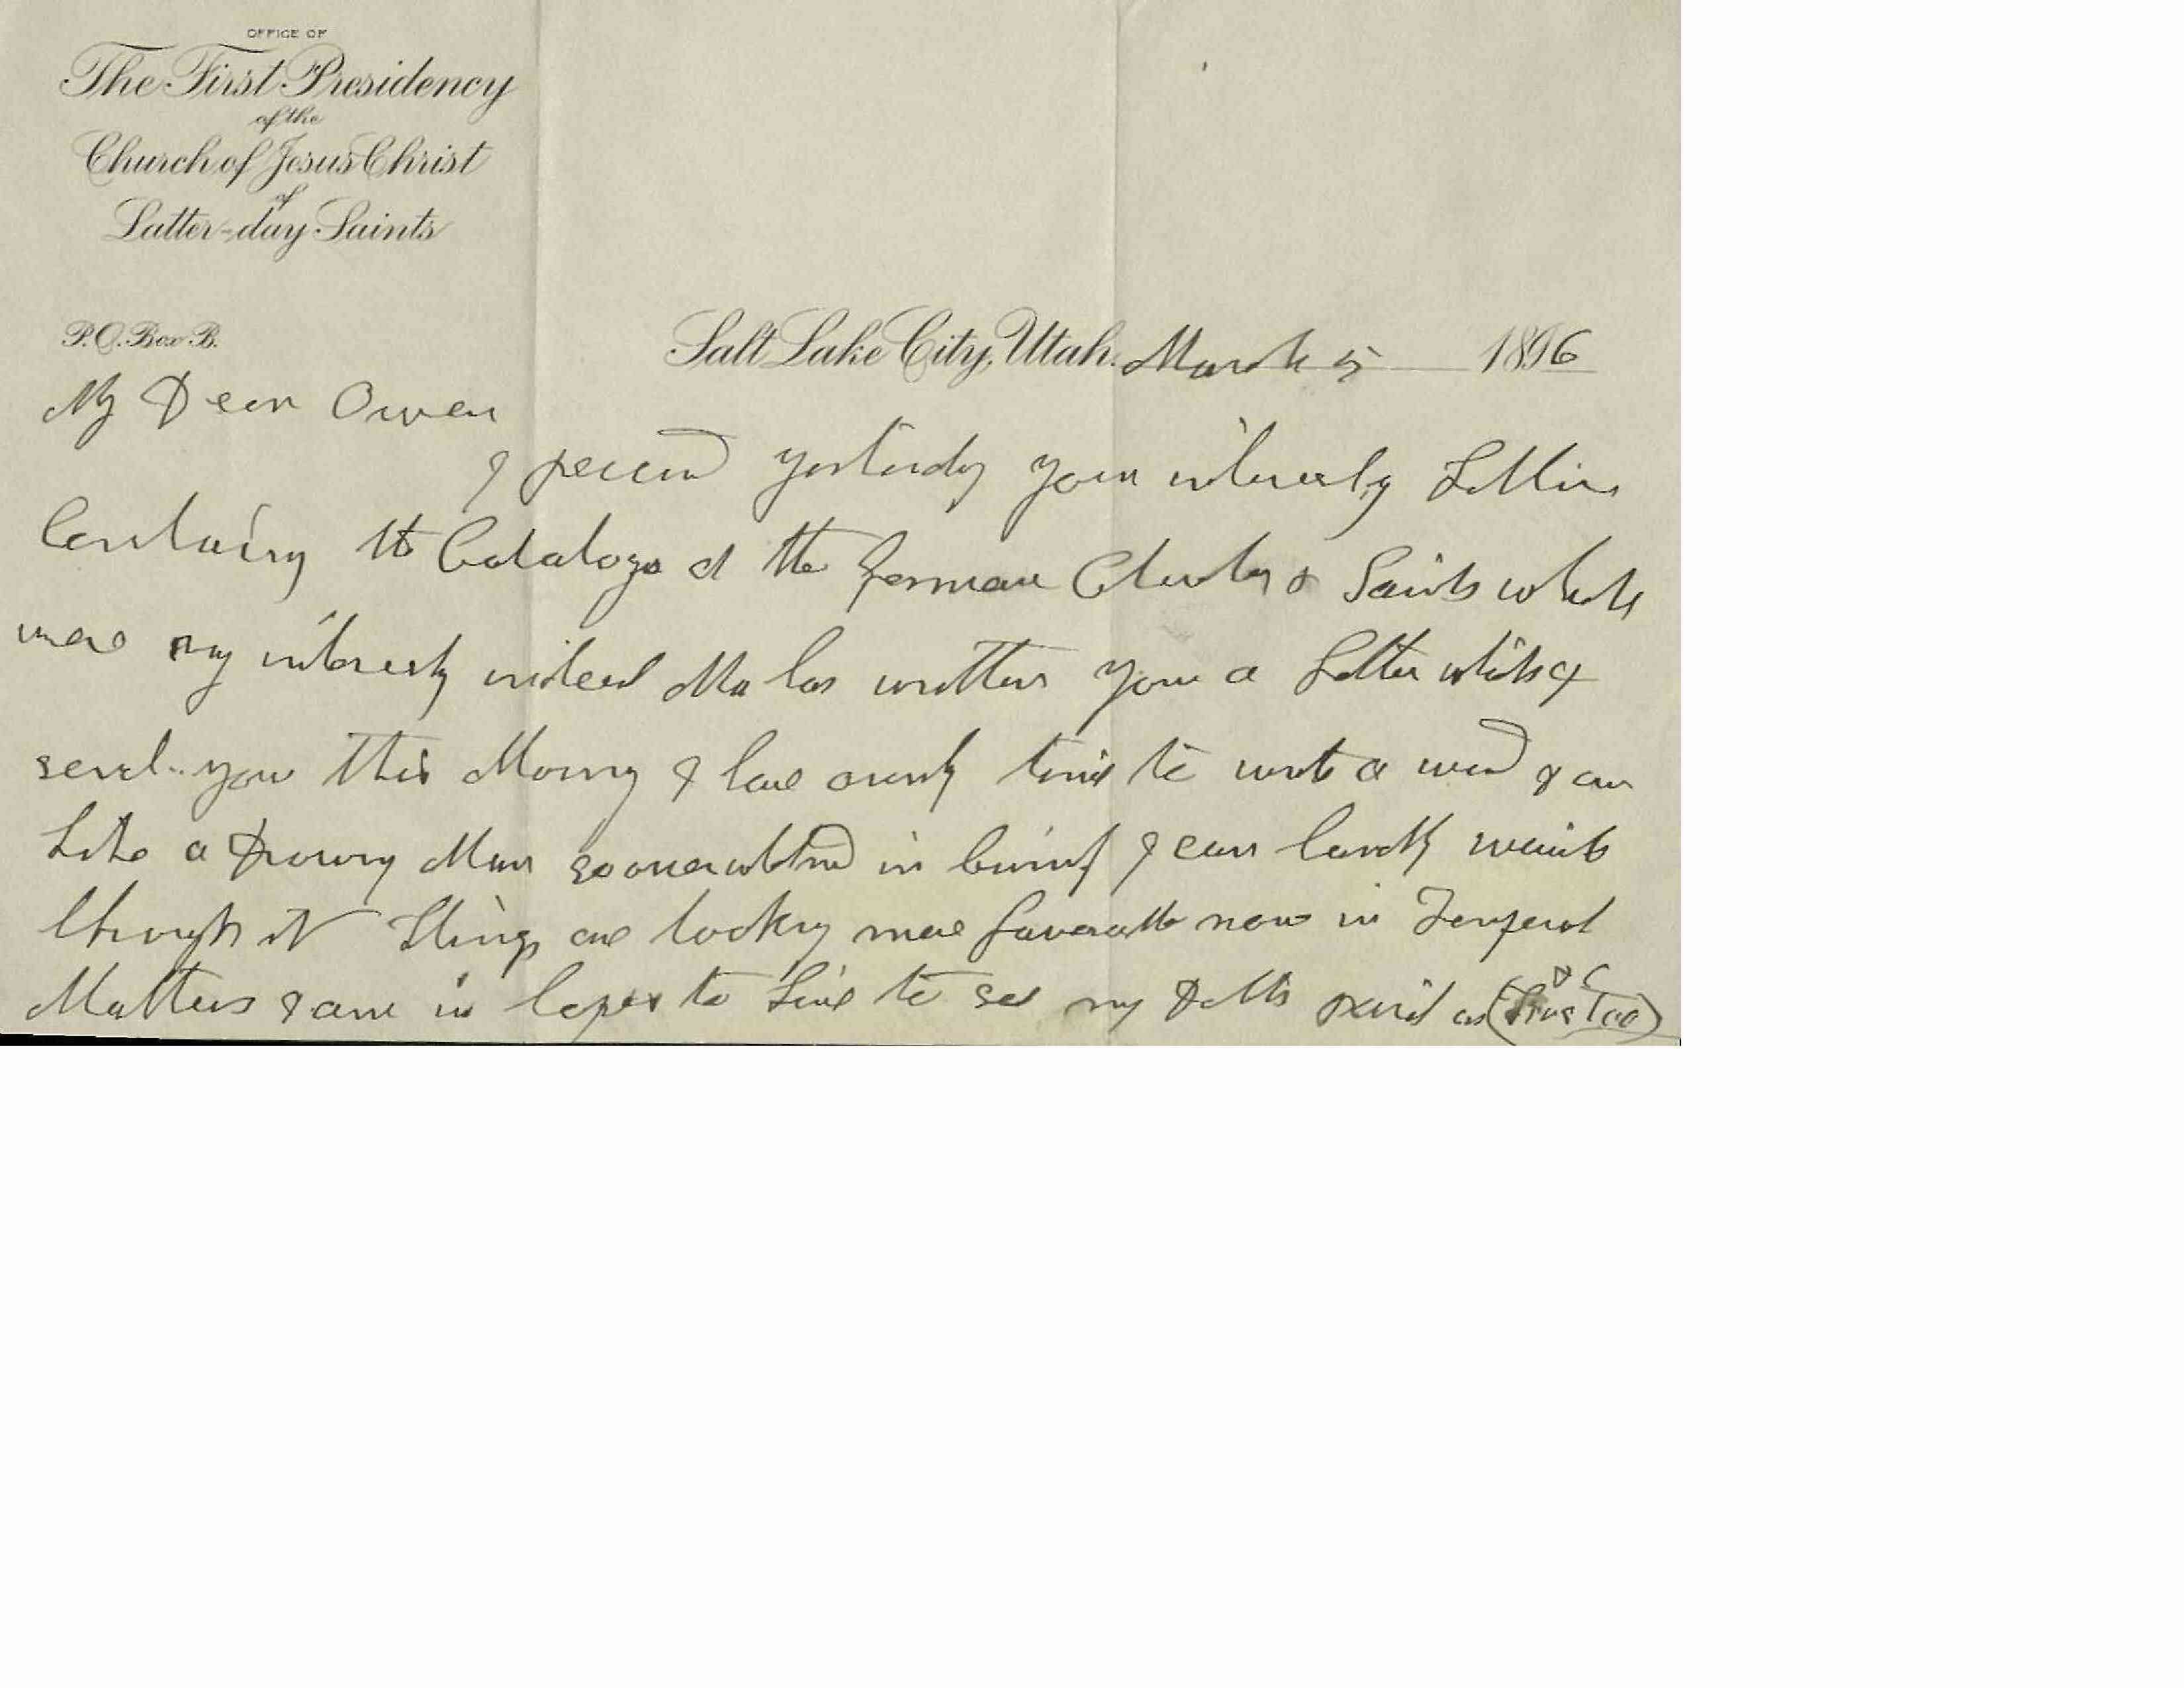 OFFICE OF
The First Presidency
of the
Church of Jesus Christ
of
Latter-day Saints
P.O. Box B.
Salt Lake City, Utah. March 5 1896
My Dear Owen
I received yesterday your interesting Letter
Containing the Catalogue of the German Churches & Saints which
were very interesting indeed Ma has written you a Letter which I
send you this Morning I have ownly time to write a word I am
Like a Drowning Man so overwhelmed in buisness I can hardly swim
through it Things are looking more favorable now in Temporal
Matters I am in hopes to Live to see my Debts paid